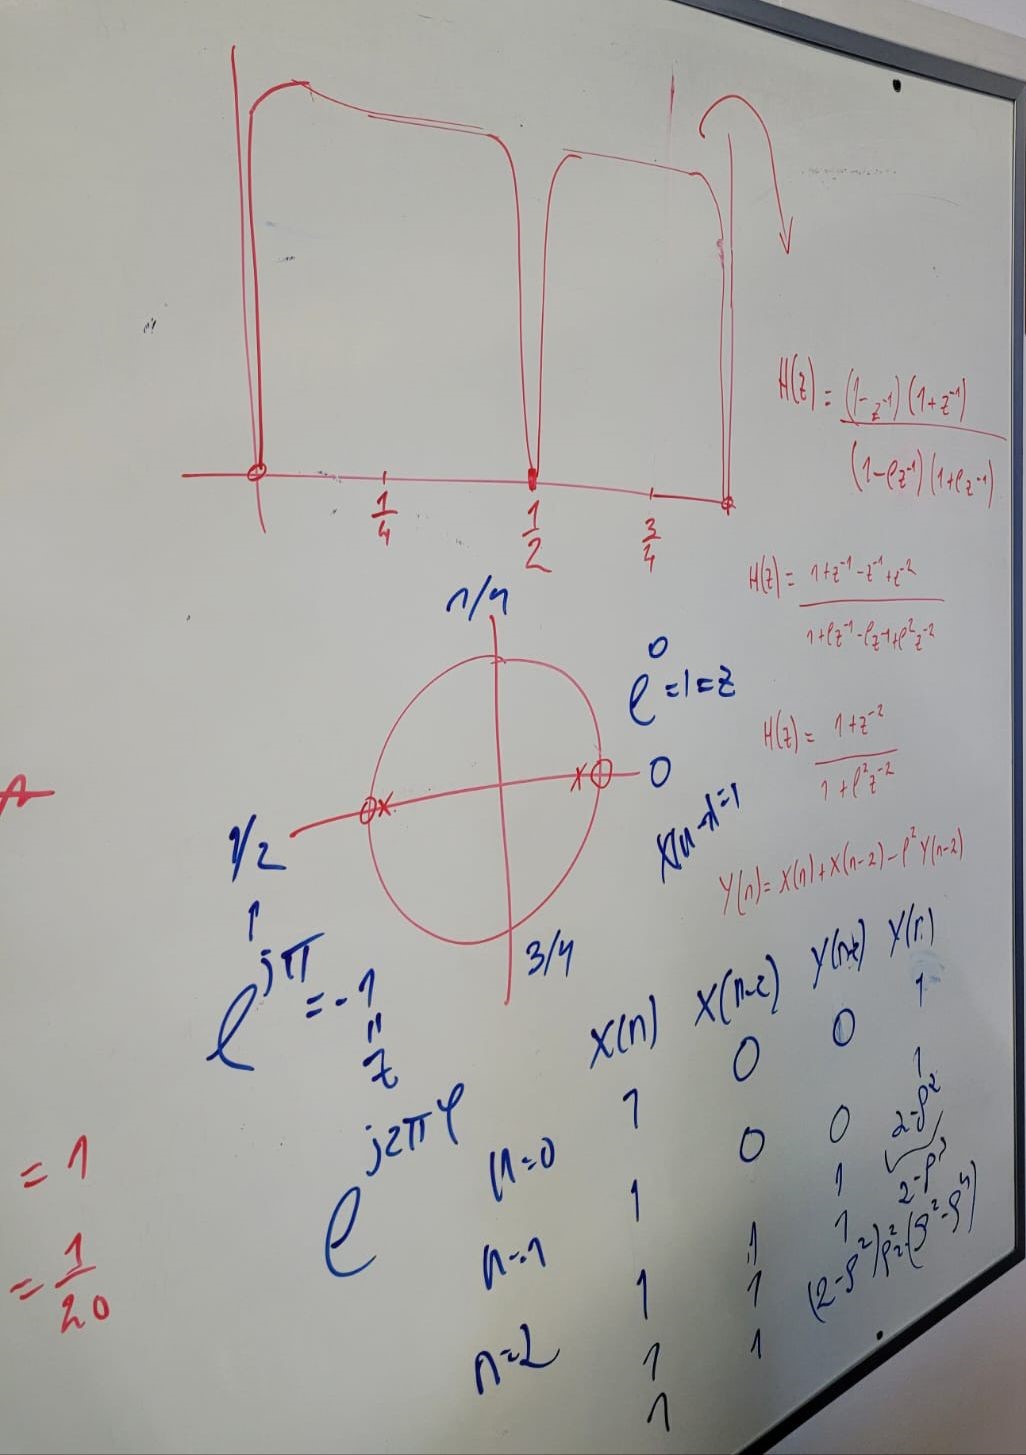 1/4
1/2
3/4
H(z) = (1-z⁻¹)(1+z⁻¹) / (1-ρz⁻¹)(1+ρz⁻¹)
H(z) = 1+z⁻¹-z⁻¹+z⁻² / 1+ρz⁻¹-ρz⁻¹+ρ²z⁻²
H(z) = 1+z⁻² / 1+ρ²z⁻²
Y(n) = X(n)+X(n-2)-ρ²Y(n-2)
1/4
e⁰ = 1 = z
0
1/2
3/4
e^jπ = -1
=
z
e^j2πφ
= 1
= 1/20
X(n) X(n-2) Y(n-2) Y(n)
n=0 1 0 0 1
n=1 1 0 0 1
n=2 1 1 1 2-ρ²
1 1 1 2-ρ²
1 1